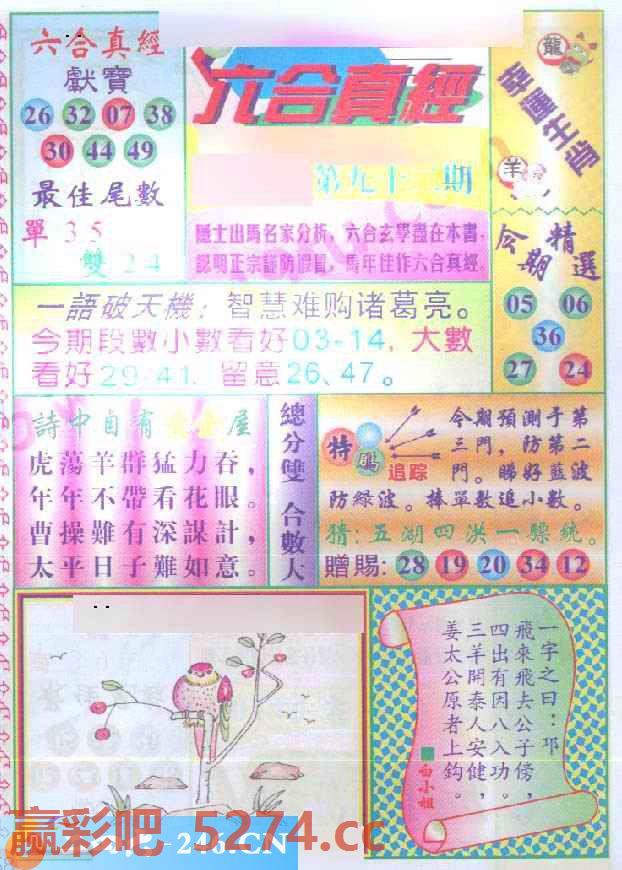 六合真經
獻寶
26 32 07 38
30 44 49
最佳尾數
單 3 5
雙 2 4
六合真經
第九十二期
隱士出馬名家分析，六合玄學盡在本書，
認明正宗謹防假冒，馬年佳作六合真經。
龍
幸運生肖
羊
今期精選
05 06
36
27 24
一語破天機：智慧难购诸葛亮。
今期段數小數看好03-14，大數
看好29-41，留意26、47。
詩中自有
屋
虎蕩羊群猛力吞，
年年不帶看花眼。
曹操難有深謀計，
太平日子難如意。
總分雙 合數大
特
追踪
今期預測于第
三門，防第二
門。睇好藍波
防綠波。棒單數追小數。
猜：五湖四洪一驃統。
贈賜：28 19 20 34 12
一字之曰：邛
飛來飛去公子傍，
四出有因八入功。
三羊開泰人安健，
姜太公原者上鈎。
白小姐
赢彩吧 5274.cc
246.CN